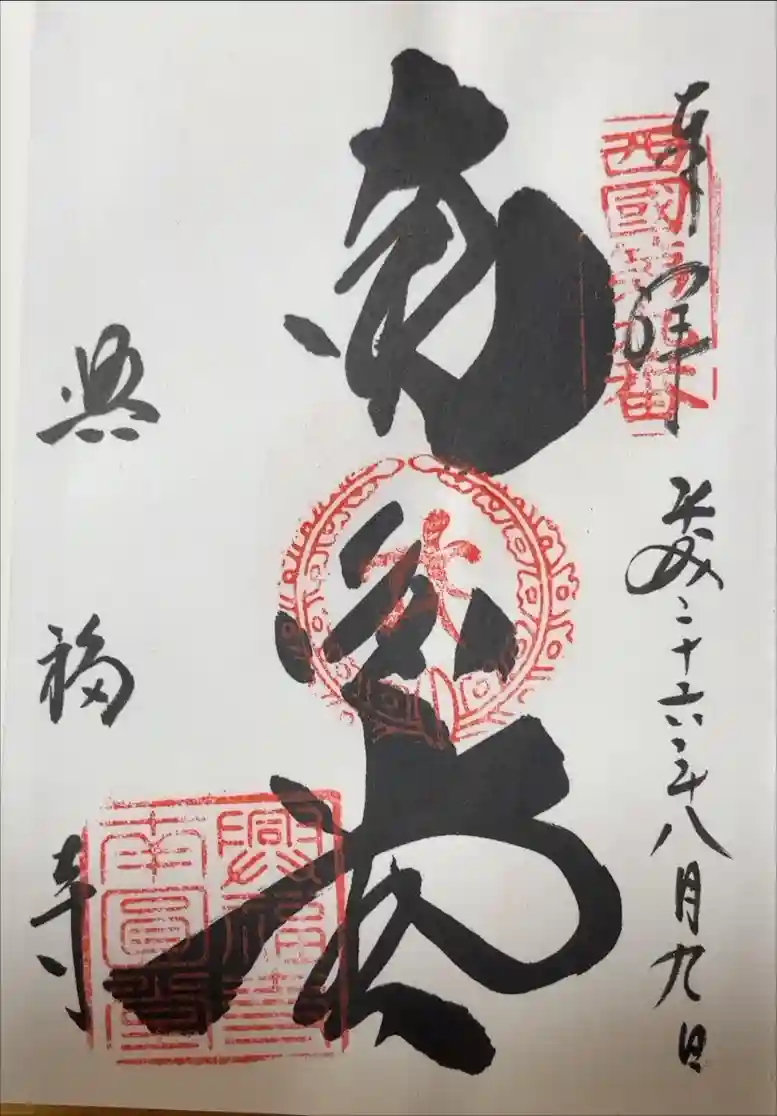 奉拝
平成二十六年八月九日
西國第九番
南円堂
興福寺
興福寺
南圓堂